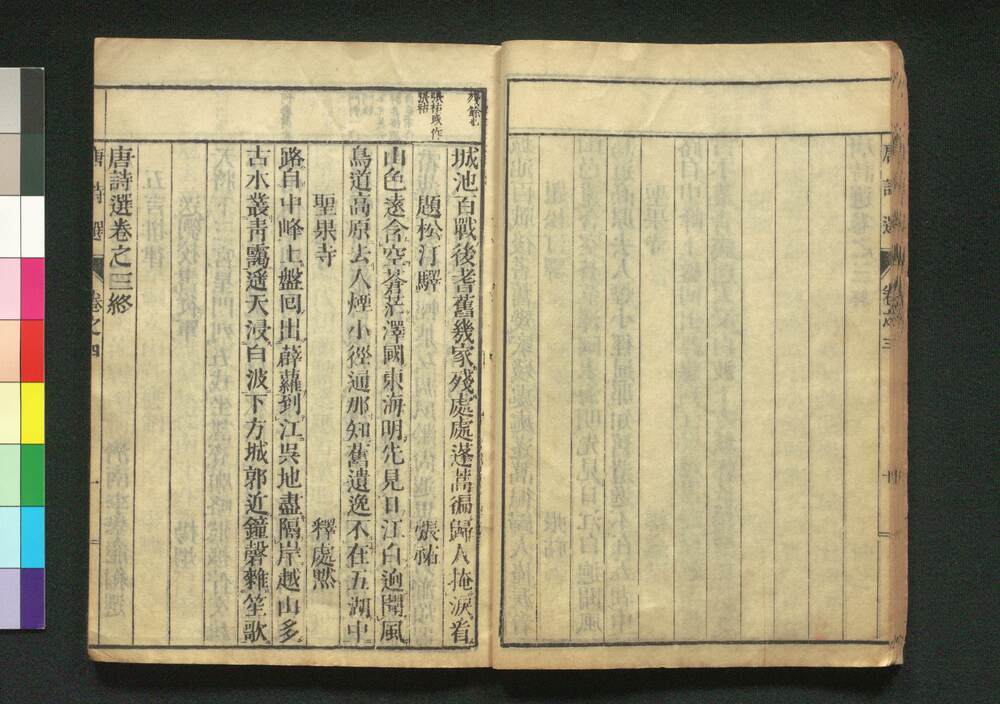 唐詩選
卷之三
城池百戰後耆舊幾家殘處處蓬蒿徧歸人掩淚看
題松汀驛
張祜
山色遠含空蒼茫澤國東海明先見日江白逈聞風
鳥道高原去人煙小徑通那知舊遺逸不在五湖中
聖果寺
釋處默
路自中峰上盤回出薜蘿到江吳地盡隔岸越山多
古木叢青靄遥天浸白波下方城郭近鐘磬雜笙歌
唐詩選卷之三終
唐詩選
卷之四
一